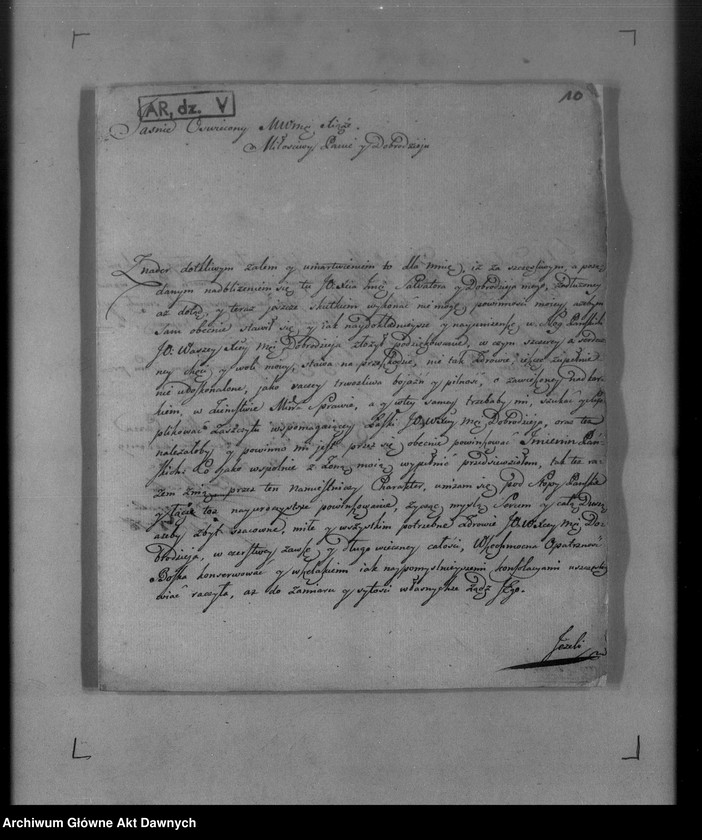 10
AR, dz. V
Jasnie Oswiecony Mość Xiąże
Miłosciwy Panie y Dobrodzieju
Z nader dotkliwym żalem y umartwieniem to dla mnie, iż za szczęsliwym, a pożą
danym nadbliżeniem się tu JO. Xcia Jmci Salvatora y Dobrodzieja mego,
aż dotąd, y teraz jeszcze skutkiem wykonać nie mogę powinnosci moiey, ażebym
sam obecnie stawił się, y jak naydokładnieysze y nayuniżeńsze w Nog Pańskich
JO. Waszey Xcey Mci Dobrodzieja złożył podziękowanie, w czym szczerey a serdecz
ney chęci y woli moiey, stawa na przeszkodzie, nie tak zdrowie jeszcze zupełnie
nie udoskonalone, jako raczey troskliwa bojaźń y pilność, o
kiem, w Sprawie, a y w tey samey trzebaby mi, szukać y
plikować zaszczytu wspomagaiącey Łaski JO. WXcey Mci Dobrodzieja, oraz też
należałoby y powinno mi jest przez się obecnie powinszować Imienin Pań
skich: Co jako wspolnie z Żoną moią wypełnić przedsiewziołem, tak też ra
zem przez ten namiestniczy Charakter, uniżam się pod Stopy Pańskie
y łącze toż nayuroczystsze powinszowanie, życząc myslą Sercem y całą Duszą
ażeby zbyt szacowne, miłe y wszystkim potrzebne zdrowie JO. WXcey Mci Do
brodzieja, w czerstwey zawsze y długo wieczney całosci, Wszechmocna Opatrzność
Boska konserwować y wszelakiemi jak naypomyslnieyszemi konsolacyami uszczęsli
wiać raczyła, aż do zamiaru y sytosci własnych żądz Jego.
Jeżeli
Archiwum Główne Akt Dawnych